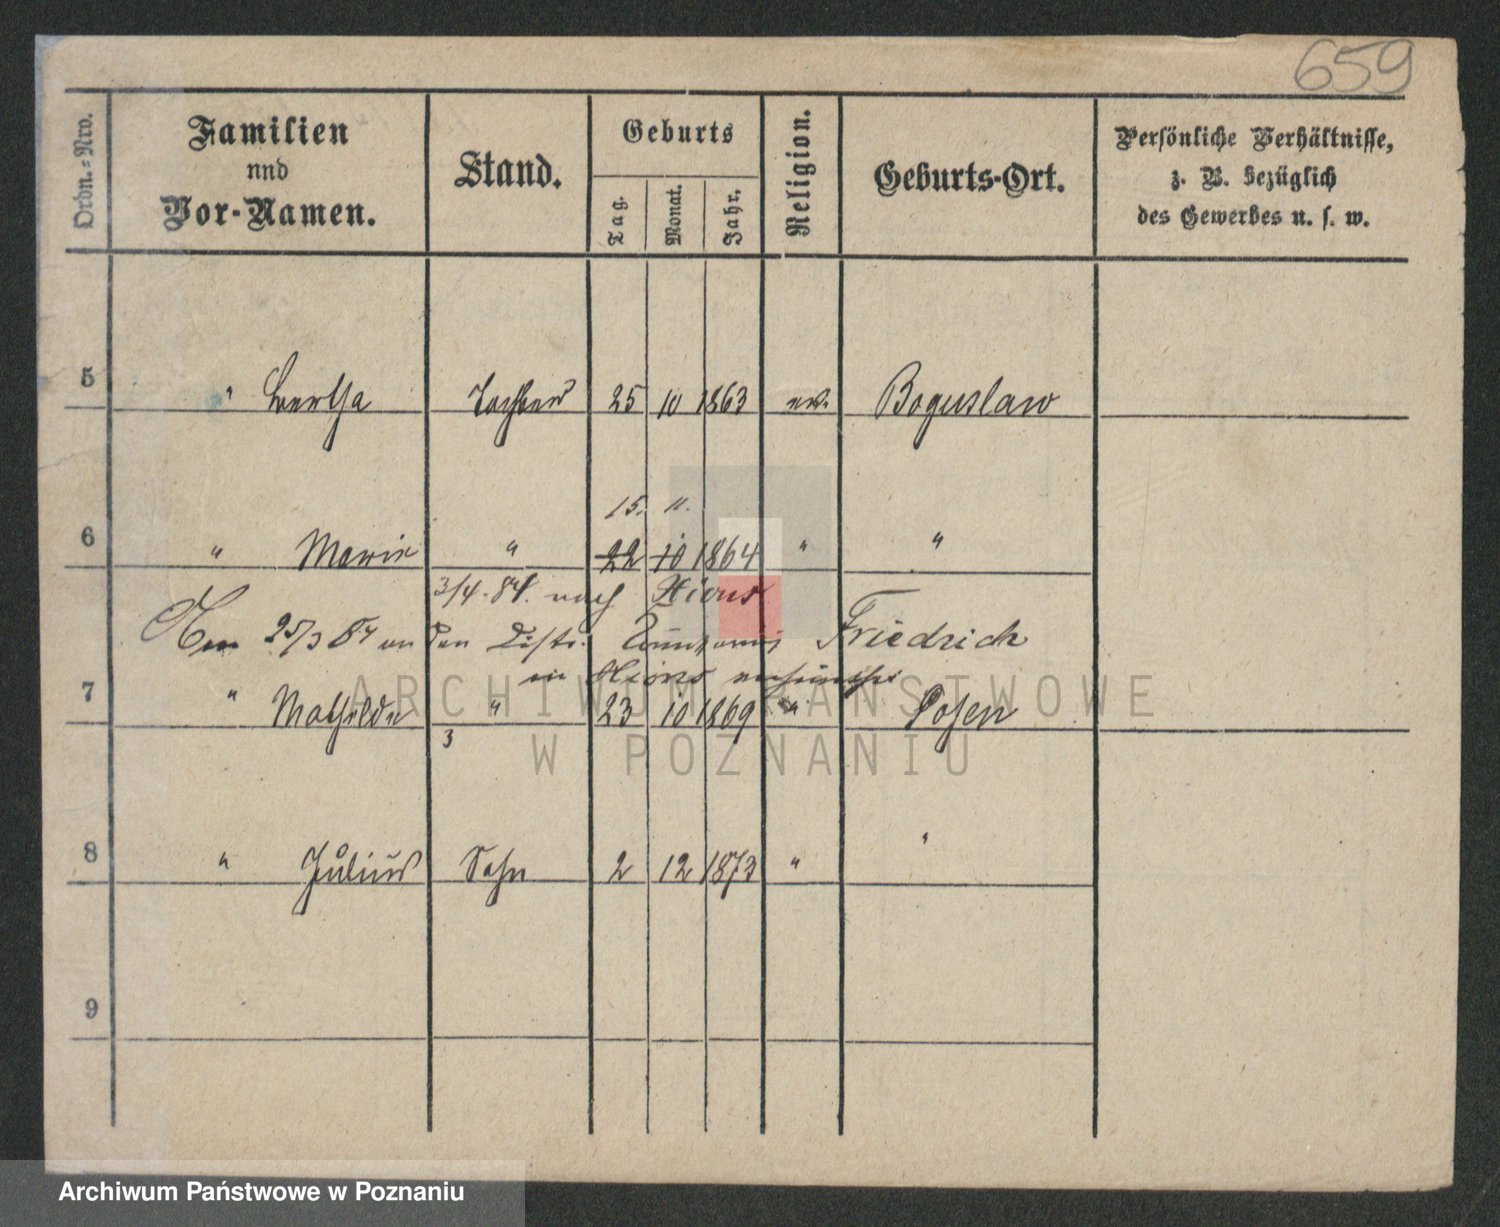 659
Ordn.=Nro.
Familien
und
Vor-Namen.
Stand.
Geburts
Tag.
Monat.
Jahr.
Religion.
Geburts-Ort.
Persönliche Verhältnisse,
z. B. bezüglich
des Gewerbes u. s. w.
5 " Bertha Tochter 25 10 1863 ev. Boguslaw
15. 11.
6 " Marie " 22 10 1864 " "
3/4. 84. nach Xions
25/3 84 an den Distr. Friedrich
in Xions
7 " Mathilde " 23 10 1869 " Posen
3
8 " Julius Sohn 2 12 1873 " "
9
ARCHIWUM PAŃSTWOWE
W POZNANIU
Archiwum Państwowe w Poznaniu